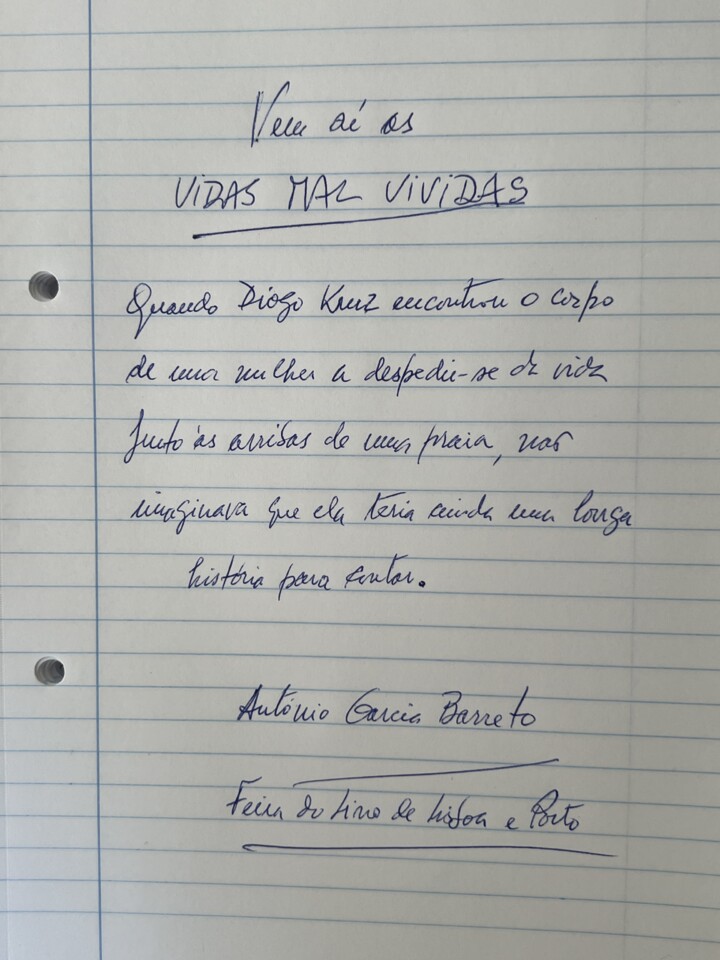 Vem aí as
VIDAS MAL VIVIDAS
Quando Diogo Kruz encontrou o corpo
de uma mulher a despedir-se da vida
junto às arribas de uma praia, não
imaginava que ela teria ainda uma longa
história para contar.
António Garcia Barreto
Feira do Livro de Lisboa e Porto